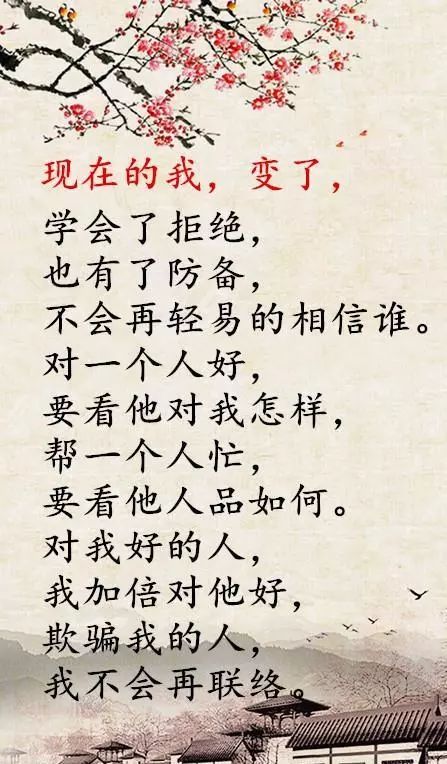 现在的我，变了，
学会了拒绝，
也有了防备，
不会再轻易的相信谁。
对一个人好，
要看他对我怎样，
帮一个人忙，
要看他人品如何。
对我好的人，
我加倍对他好，
欺骗我的人，
我不会再联络。